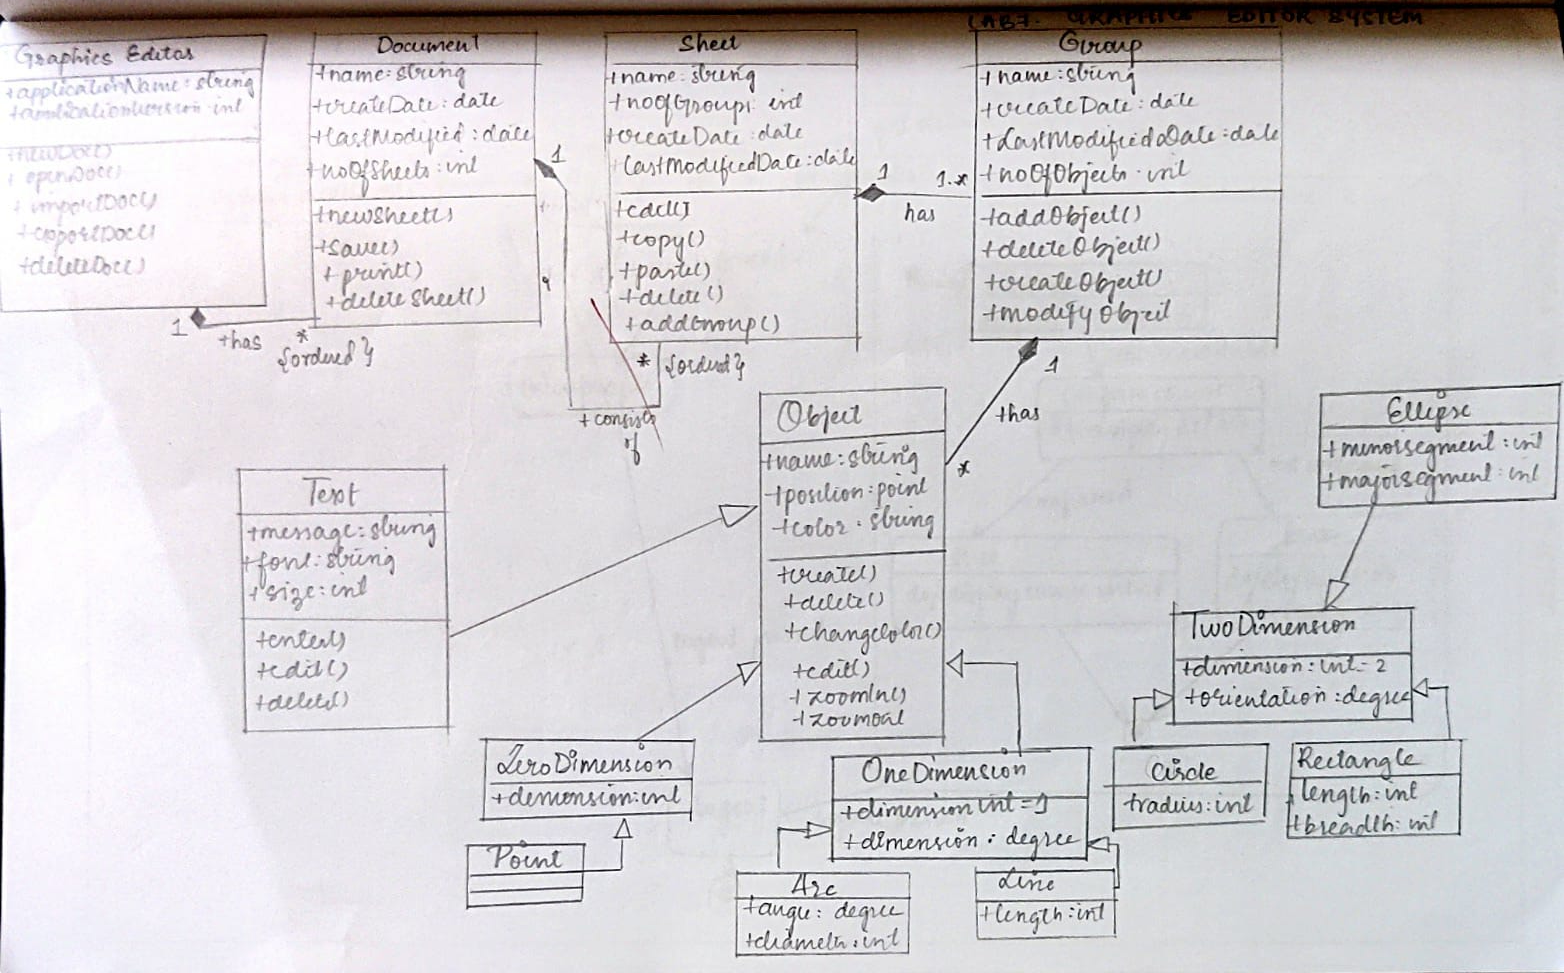 LAB7. GRAPHICS EDITOR SYSTEM
Graphics Editor
+applicationName: string
+applicationversion: int
+newDoc()
+openDoc()
+importDoc()
+exportDoc()
+deleteDoc()
1
+has
*
{ordered}
Document
+name: string
+createDate: date
+lastModified: date
+noOfSheets: int
+newSheet()
+save()
+print()
+deleteSheet()
1
+consists
of
Sheet
+name: string
+noofGroups: int
+createDate: date
+lastModifiedDate: date
+edit()
+copy()
+paste()
+delete()
+addGroup()
* {ordered}
1
1..*
has
Group
+name: string
+createDate: date
+LastModifiedDate: date
+noOfObjects: int
+addObject()
+deleteObject()
+createObject()
+modifyObject
1
+has
*
Object
+name: string
+position: point
+color: string
+create()
+delete()
+changeColor()
+edit()
+zoomIn()
+zoomout
Text
+message: string
+font: string
+size: int
+enter()
+edit()
+delete()
Ellipse
+minorsegment: int
+majorsegment: int
TwoDimension
+dimension: int=2
+orientation: degree
ZeroDimension
+demension: int
Point
OneDimension
+dimension int=1
+dimension: degree
Circle
+radius: int
Rectangle
+length: int
+breadth: int
Arc
: degree
: int
Line
+length: int